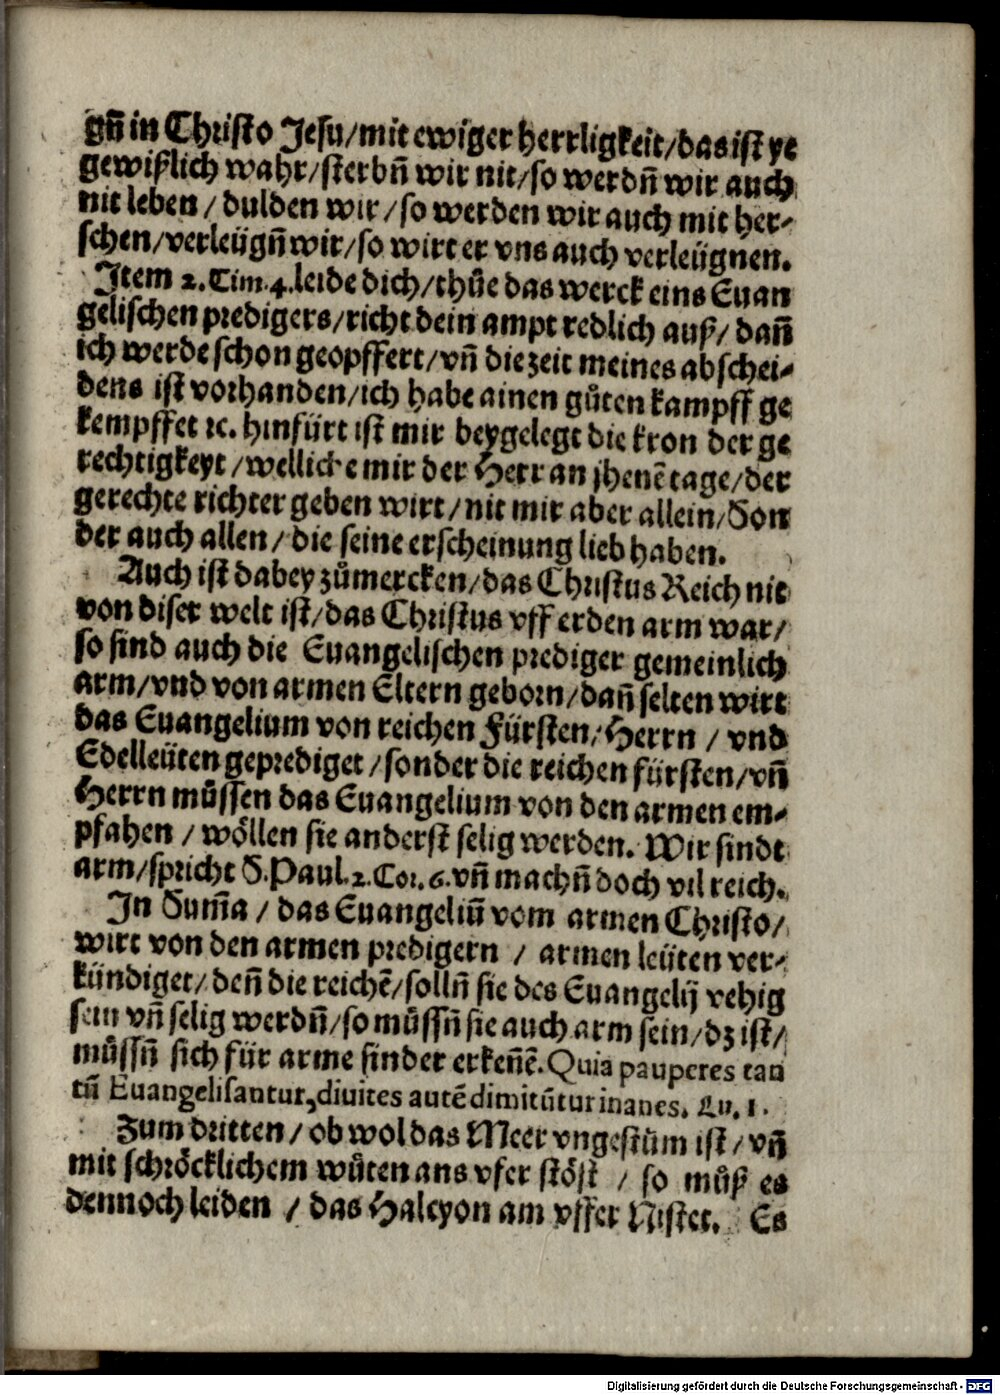 gn̄ in Christo Jesu/mit ewiger herrligkeit/das ist ye
gewißlich wahr/sterbn̄ wir nit/so werdn̄ wir auch
nit leben / dulden wir / so werden wir auch mit her-
schen/verleügn̄ wir/so wirt er vns auch verleügnen.
Item 2. Tim. 4. leide dich/thůe das werck eins Euan
gelischen predigers/richt dein ampt redlich auß/ dañ
ich werde schon geopffert/vn̄ die zeit meines abschei-
dens ist vorhanden/ich habe ainen gůten kampff ge
kempffet ꝛc. hinfürt ist mir beygelegt die kron der ge
rechtigkeyt /welliche mir der Herr an jhenē tage/der
gerechte richter geben wirt / nit mir aber allein/Son
der auch allen / die seine erscheinung lieb haben.
Auch ist dabey zůmercken/das Christus Reich nit
von diser welt ist/das Christus vff erden arm war/
so sind auch die Euangelischen prediger gemeinlich
arm/vnd von armen Eltern geborn/dañ selten wirt
das Euangelium von reichen Fürsten/Herrn / vnd
Edelleüten geprediget /sonder die reichen fürsten/vn̄
Herrn müssen das Euangelium von den armen em-
pfahen / wöllen sie anderst selig werden. Wir sindt
arm/spricht S. Paul. 2. Cor. 6. vn̄ machn̄ doch vil reich.
In Sum̄a / das Euangeliū vom armen Christo/
wirt von den armen predigern / armen leüten ver-
kündiget/ den̄ die reichē/solln̄ sie des Euangelij vehig
sein vn̄ selig werdn̄/so müssn̄ sie auch arm sein/dz ist/
müssn̄ sich für arme sinder erken̄ē. Quia pauperes tan
tū Euangelisantur, divites autē dimitūtur inanes. Lu. 1.
Zum dritten / ob wol das Meer vngestům ist / vn̄
mit schröcklichem wůten ans vfer stöst / so můß es
dennoch leiden / das Halcyon am vffer Nistet. Es
Digitalisierung gefördert durch die Deutsche Forschungsgemeinschaft - DFG